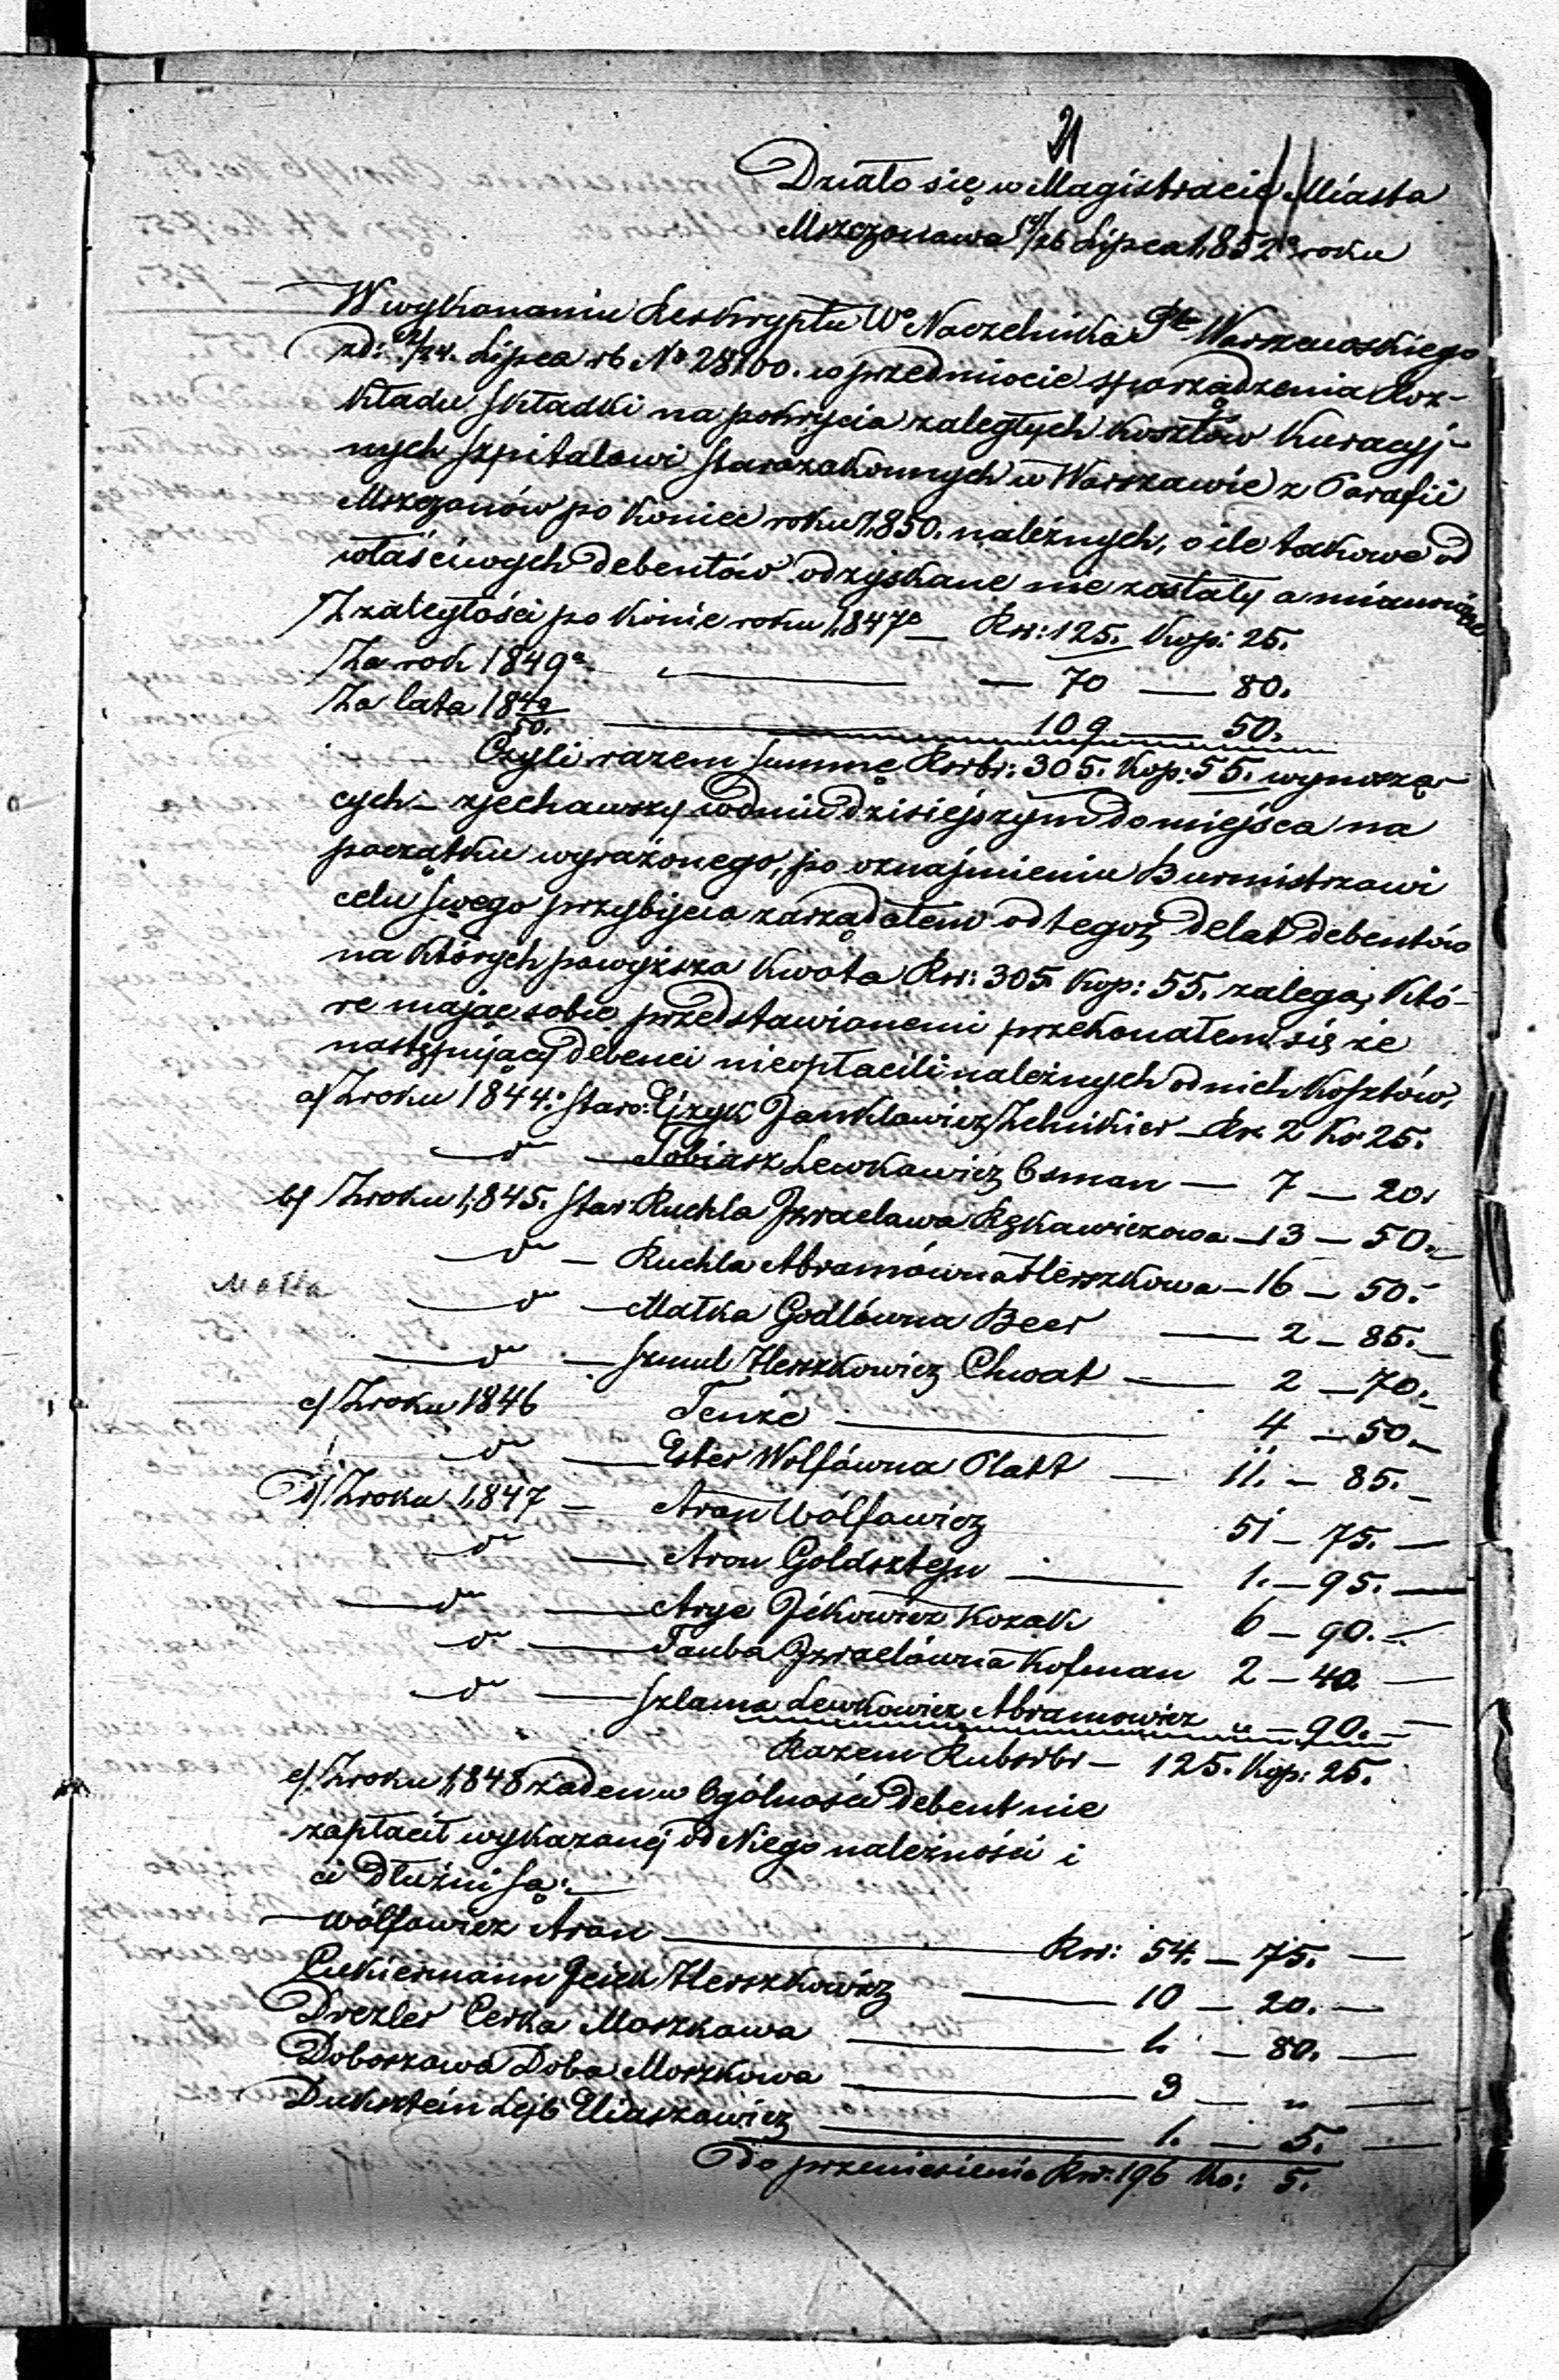 21
Działo się w Magistracie Miasta
Mszczonowa 14/26 Lipca 1852o roku
W wykonaniu Reskryptu Wo Naczelnika Ptu Warszawskiego
zd: 12/24. Lipca rb No 28100. w przedmiocie sporządzenia Roz-
kładu składki na pokrycia zaległych kosztów Kuracyj-
nych Szpitalowi Starozakonnych w Warszawie z Parafii
Mszczonów po koniec roku 1,850. należnych, o ile takowe od
właściwych debentów odzyskane nie zostały a mianowicie
Z zaległości po konie roku 1,847o — Rs: 125. Kop: 25.
Za rok 1849o — — 70 — 80.
Za lata 1849/50. — 109 — 50.
Czyli razem Summę Rsrbr: 305. Kop: 55. wynoszą-
cych — zjechawszy w dniu dzisiejszym do miejsca na
początku wyrażonego, po oznajmieniu Burmistrzowi
celu swego przybycia zarządałem od tegoż delat debentów
na których powyższa kwota Rs: 305. Kop: 55. zalega, Któ-
re mając sobie przedstawionemi przekonałem się że
następujący debenci nieopłacili należnych od nich Kosztów,
a/ Z roku 1844: Staro: Ejzyk Janklowicz Zelnikier — Rs. 2 Ko 25.
— do — Tobiasz Lewkowicz Osman — 7 — 20.
b/ Z roku 1,845. Star: Ruchla Izraelowa Rękawiczowa — 13 — 50.
— do — Ruchla Abramówna Herszkowa — 16 — 50.
Małka
— do — Małka Godlówna Beer — 2 — 85.
— do — Szmul Herszkowicz Chwat — 2 — 70.
c/ Z roku 1846 Tenże — 4 — 50.
do — Ester Wolfówna Platt — 11. — 85.
d/ Z roku 1,847 — Aron Wólfowicz 51 — 75. —
do — Aron Goldsztejn — 1. — 95. —
— do — Arye Ickowicz Kozak 6 — 90. —
do — Tauba Izraelówna Kofman 2 — 40 —
— do — Szlama Lewkowicz Abramowicz „ — 90. —
Razem Rubsrbr — 125. Kop: 25.
e/ Z roku 1,848 żaden w Ogólności debent nie
zapłacił wykazanej od Niego należności i
ci dłużni są: —
Wólfowicz Aron — Rs: 54. — 75. —
Cukiermann Jcick Herszkowicz — 10 — 20. —
Drezler Cerka Moszkowa — 1. — 80. —
Doboszowa Doba Moszkowa — 3 — „ —
Duksztein Lejb Eliaszowicz — 1. — 5. —
Do przeniesienia Rs: 196 Ko: 5.